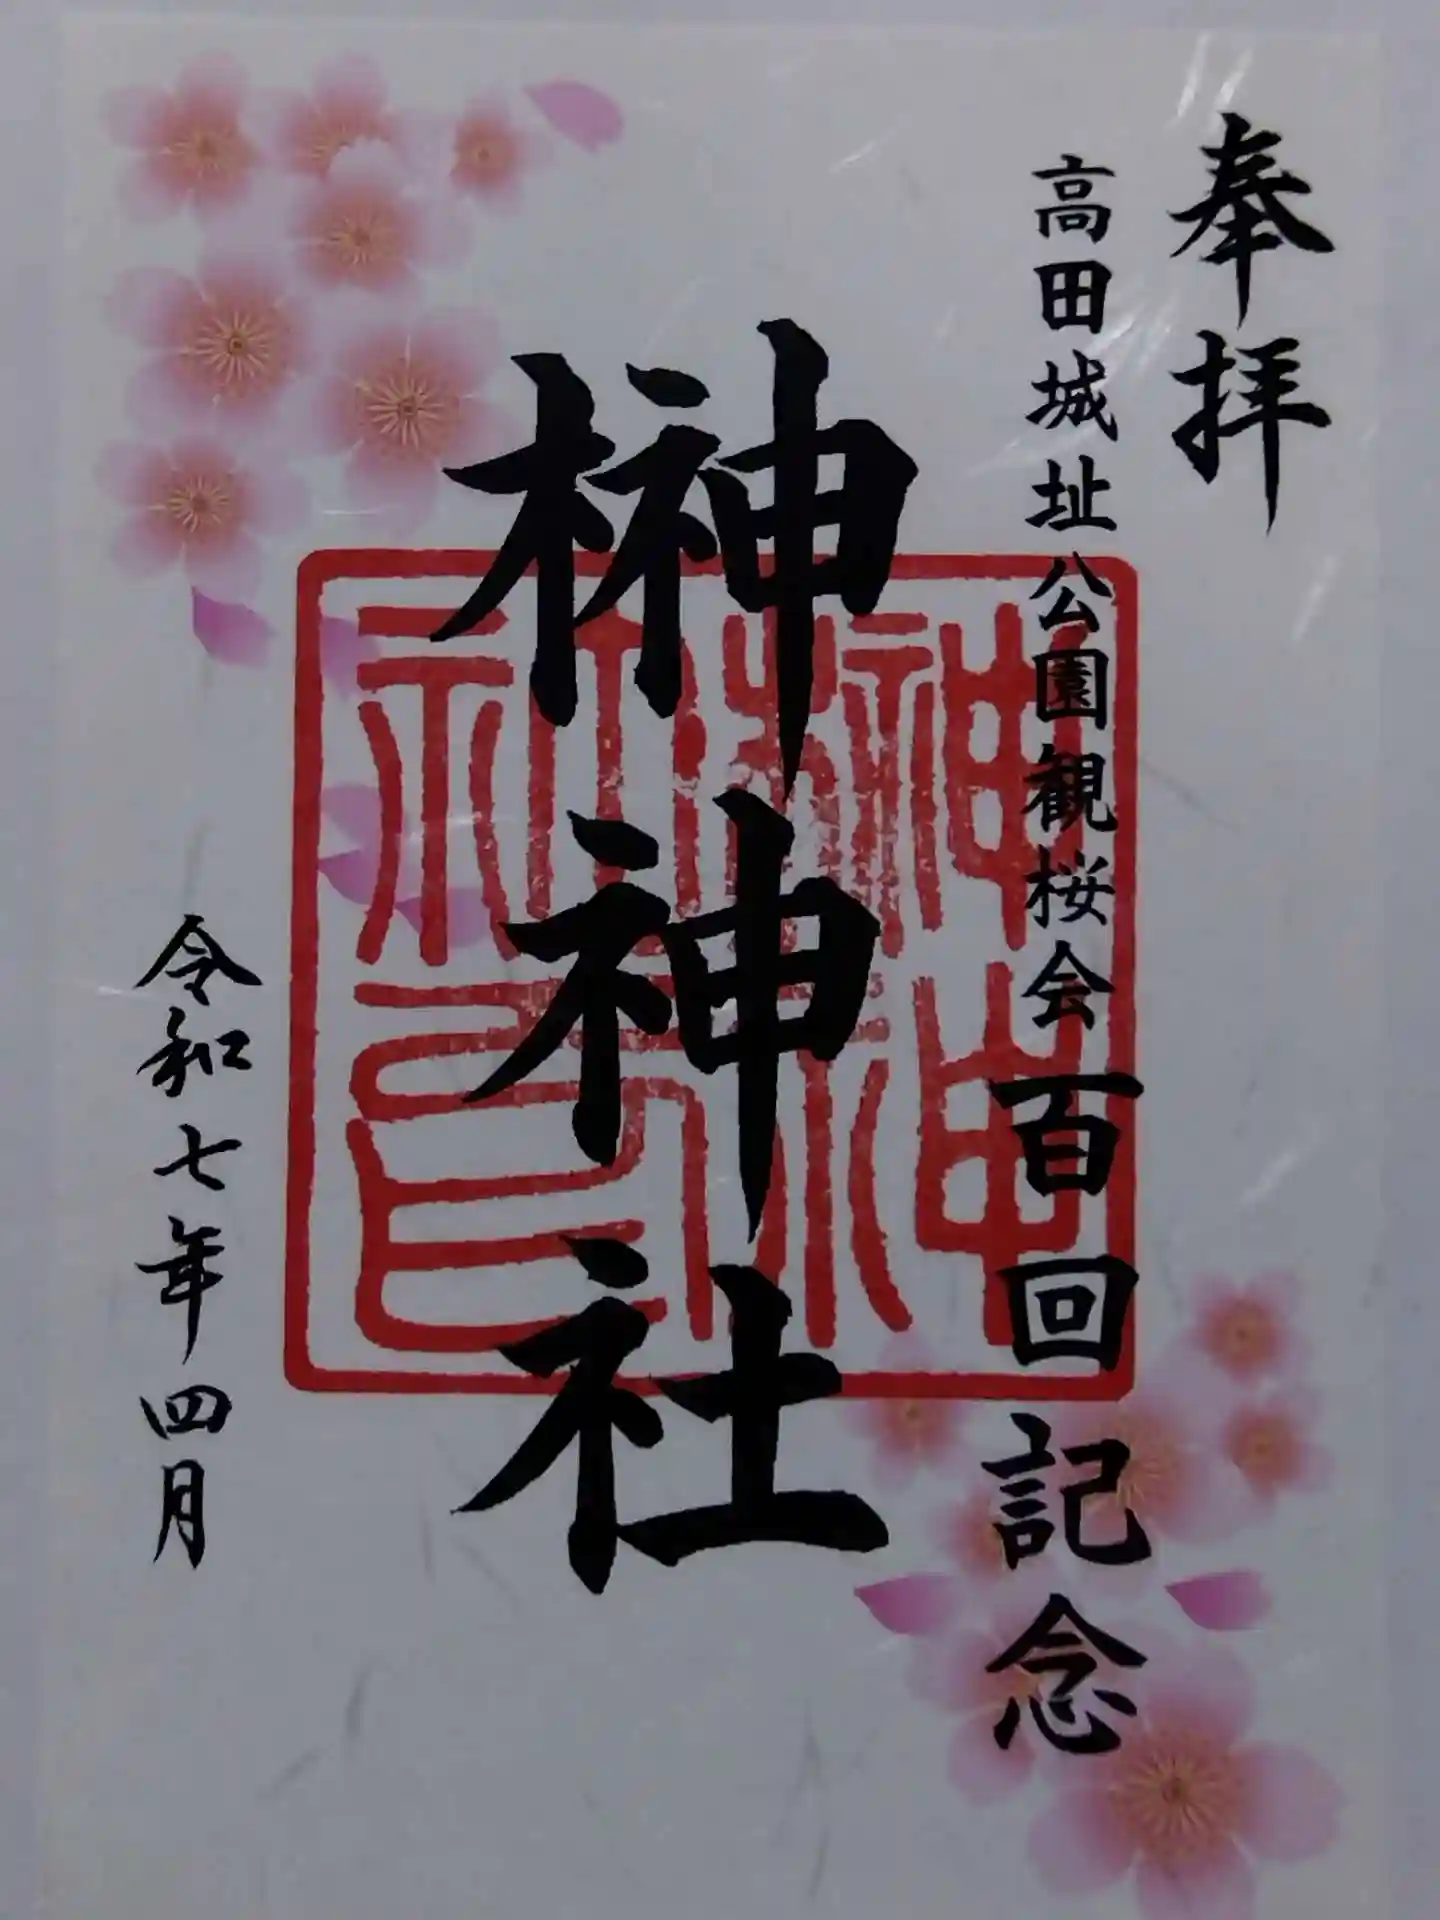 奉拝
高田城址公園観桜会百回記念
榊神社
榊神社之印
令和七年四月